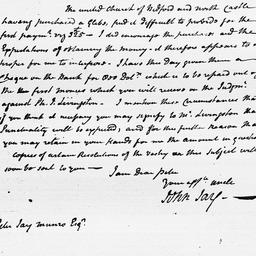 The united Church of Bedford and north Castle
having purchased a Glebe, find it difficult to provide for the
first paymt. vizt. £ — I did encourage the purchase and the
Expectations of obtaining the money — it therefore appears to
proper for me to interpose. I have this Day given them a
Cheque on the Bank for 800 Dolrs. which is to be repaid out of
the first monies which you will recieve on the Judgmt.
against Ph. J. Livingston. I mention these circumstances that
if you think it necessary you may signify to Mr. Livingston that
Punctuality will be expected; and for this further reason that
you may retain in your Hands for me the amount in question
copies of certain Resolutions of the Vestry on this Subject will
soon be sent to you — I am Dear Peter
your afft. uncle
John Jay —
Peter Jay Munro Esqr.